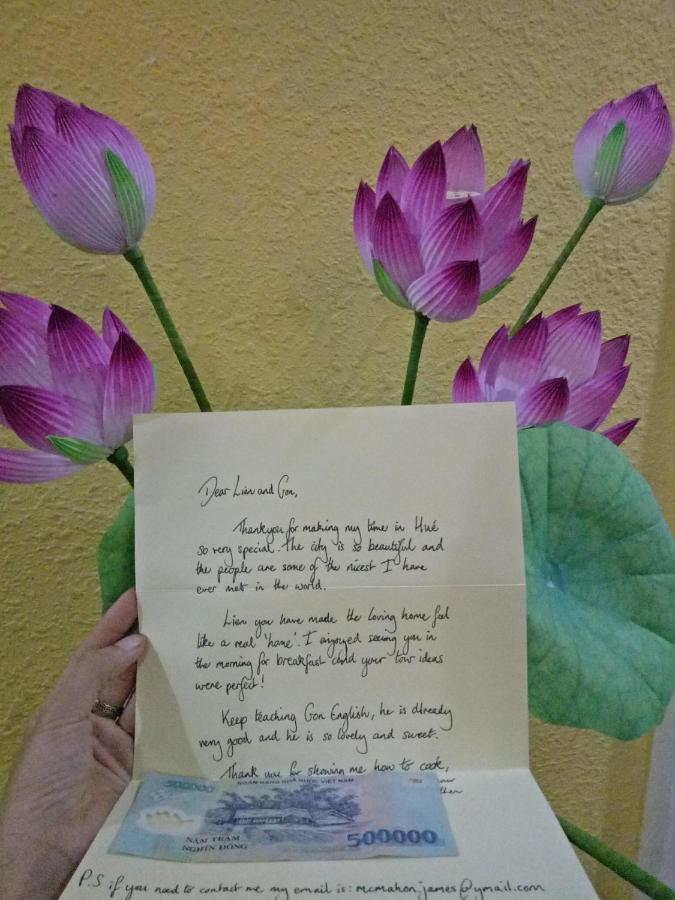 Dear Lien and Gon,
Thankyou for making my time in Hué
so very special. The city is so beautiful and
the people are some of the nicest I have
ever met in the world.
Lien you have made the loving home feel
like a real 'home'. I enjoyed seeing you in
the morning for breakfast and your tour ideas
were perfect!
Keep teaching Gon English, he is already
very good and he is so lovely and sweet.
Thank you for showing me how to cook,
500000
NGÂN HÀNG NHÀ NƯỚC VIỆT NAM
NĂM TRĂM
NGHÌN ĐỒNG
500000
P.S if you need to contact me my email is: mcmahon.james@ymail.com